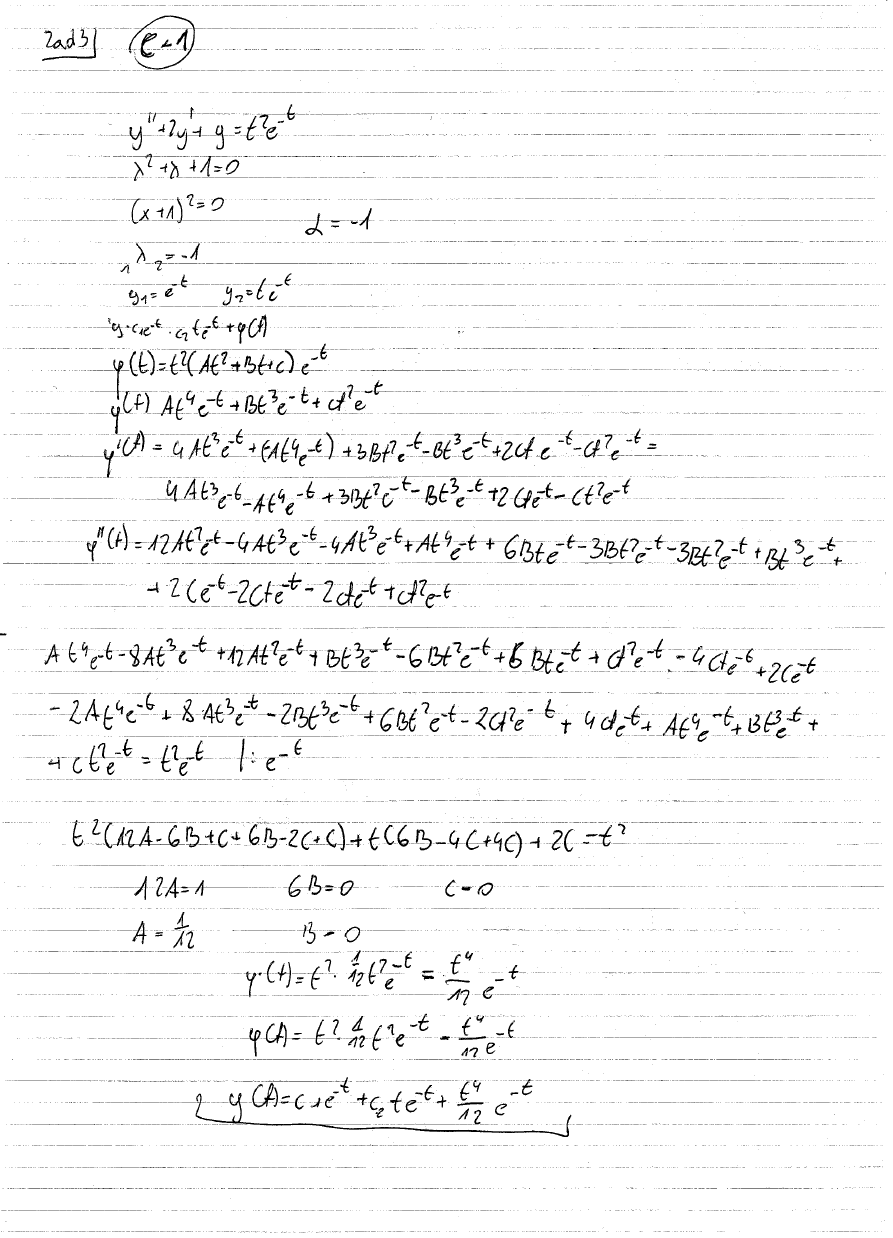 2ad3| e-1
y''+2y'+y=t²e^-t
λ²+λ+1=0
(x+1)²=0 α=-1
₁λ₂=-1
y₁=e^-t y₂=te^-t
y=c₁e^-t+c₂te^-t+φ(t)
φ(t)=t²(At²+Bt+c)e^-t
φ(t) At⁴e^-t+Bt³e^-t+ct²e^-t
φ'(t)=4At³e^-t+(-At⁴e^-t)+3Bt²e^-t-Bt³e^-t+2ct e^-t-ct²e^-t=
4At³e^-t-At⁴e^-t+3Bt²e^-t-Bt³e^-t+2cte^-t-ct²e^-t
φ''(t)=12At²e^-t-4At³e^-t-4At³e^-t+At⁴e^-t+6Bte^-t-3Bt²e^-t-3Bt²e^-t+Bt³e^-t+
+2Ce^-t-2Cte^-t-2cte^-t+ct²e^-t
At⁴e^-t-8At³e^-t+12At²e^-t+Bt³e^-t-6Bt²e^-t+6Bte^-t+ct²e^-t-4cte^-t+2Ce^-t
-2At⁴e^-t+8At³e^-t-2Bt³e^-t+6Bt²e^-t-2ct²e^-t+4cte^-t+At⁴e^-t+Bt³e^-t+
+ct²e^-t=t²e^-t |:e^-t
t²(12A-6B+C+6B-2C+C)+t(6B-4C+4C)+2C=t²
12A=1 6B=0 C=0
A=1/12 B=0
φ(t)=t²·1/12t²e^-t=t⁴/12 e^-t
φ(t)=t²·1/12t²e^-t=t⁴/12 e^-t
y(t)=c₁e^-t+c₂te^-t+t⁴/12 e^-t